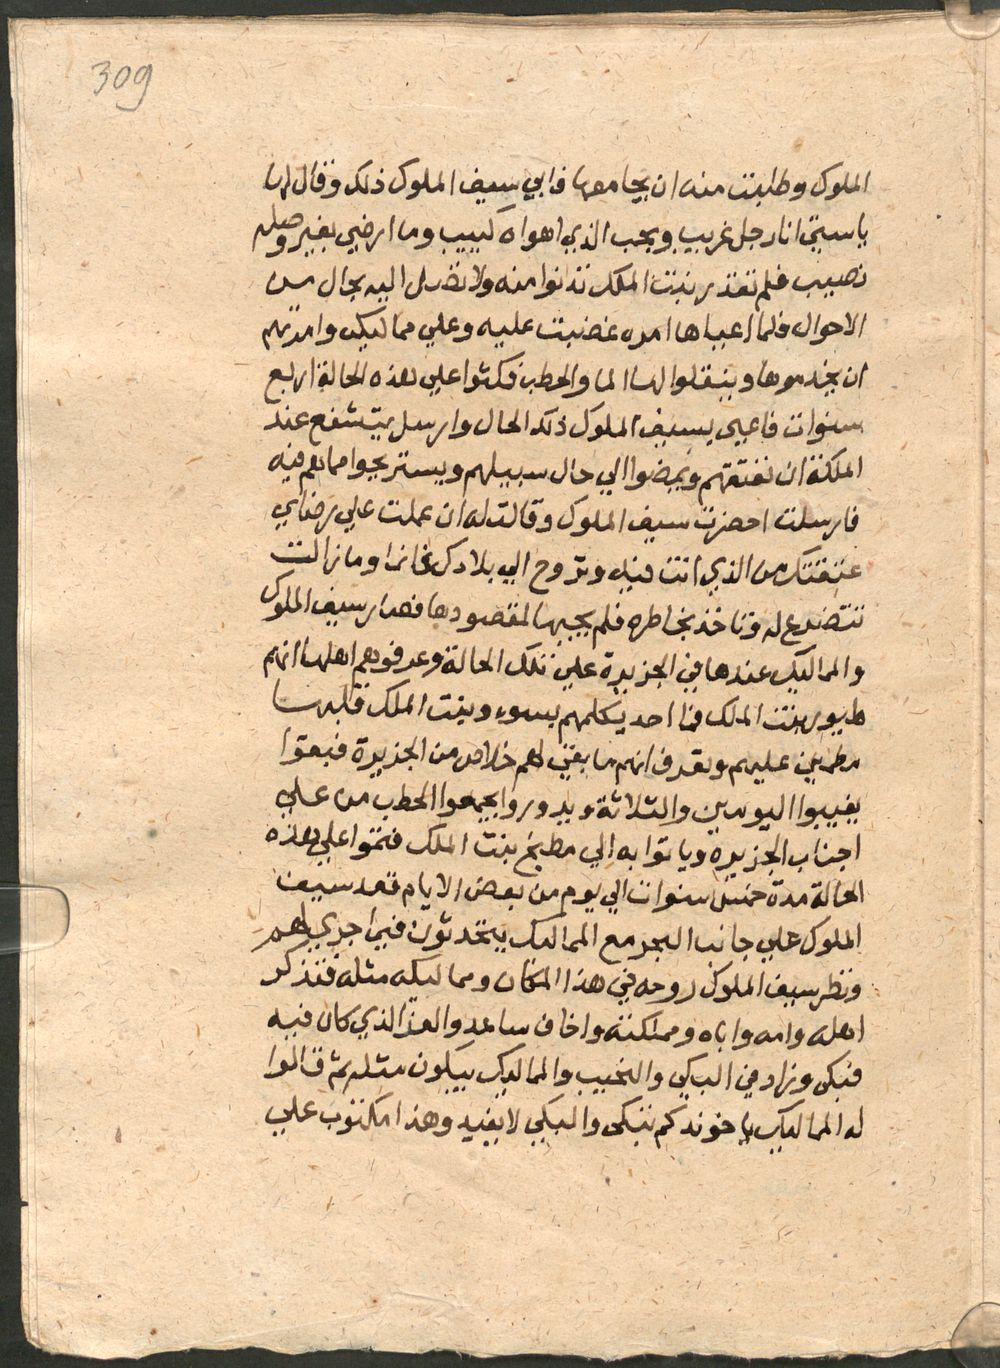 309
الملوك وطلبت منه ان يجامعها فابي سيف الملوك ذلك وقال لها
ياستي انا رجل غريب وبحب الذي اهواه كييب وما ارضي بغير وصله
نصيب فلم تقدر بنت الملك تدنوا منه ولا تضرل اليه بحال من
الاحوال فلما اعياها امره غضبت عليه وعلي مماليكه وامرتهم
ان يخدموها وينقلوا لها الما والحطب فمكثوا علي هذه الحالة اربع
سنوات فاعيي بسيف الملوك ذلك الحال وارسل يتشفع عند
الملكة ان تعتقهم ويمضوا الي حال سبيلهم ويستريحوا مما هم فيه
فارسلت احضرت سيف الملوك وقالت له ان عملت علي رضاي
عتقتك من الذي انت فيه وتروح الي بلادك غانما وما زالت
تتضرع له وتاخذ بخاطره فلم يجيبها لمقصودها فصار سيف الملوك
والمماليك عندها في الجزيرة علي تلك الحالة وعرفوهم اهلها انهم
طيور بنت الملك فما احد يكلمهم بسوء وبنت الملك قلبها
مطمين عليهم وتعرف انهم ما بقي لهم خلاص من الجزيرة فبقوا
يغيبوا اليومين والثلاثة ويدوروا يجمعوا الحطب من علي
اجناب الجزيره وياتوا به الي مطبخ بنت الملك فتموا علي هذه
الحالة مدة خمس سنوات الي يوم من بعض الايام قعد سيف
الملوك علي جانب البحر مع المماليك يتحدثون فيما جري لهم
ونظر سيف الملوك روحه في هذا المكان ومماليكه مثله فتذكر
اهله وامه واباه ومملكته واخاه ساعد والعز الذي كان فيه
فبكي وزاد في البكي والنحيب والمماليك يبكون مثله ثم قالوا
له المماليك يا خوند كم نبكي والبكي لا يفيد وهذا مكتوب علي